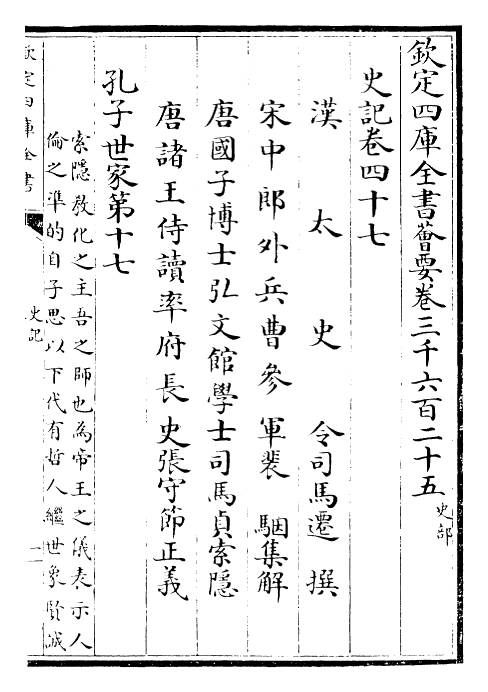 欽定四庫全書薈要卷三千六百二十五
史部
史記卷四十七
漢太史令司馬遷撰
宋中郎外兵曹參軍裴駰集解
唐國子博士弘文館學士司馬貞索隱
唐諸王侍讀率府長史張守節正義
孔子世家第十七
索隱教化之主吾之師也為帝王之儀表示人
倫之準的自子思以下代有哲人繼世象賢誠
欽定四庫全書
史記
一